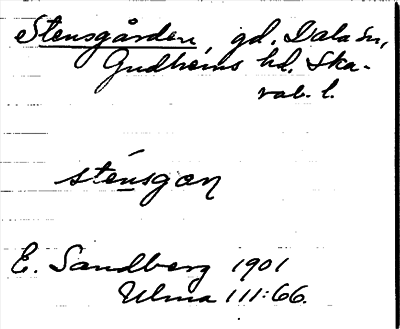 Stensgården, gd. Dala sn,
Gudhems hd. Ska-
rab. l.
sténsgan
E. Sandberg 1901
Ulma 111:66.